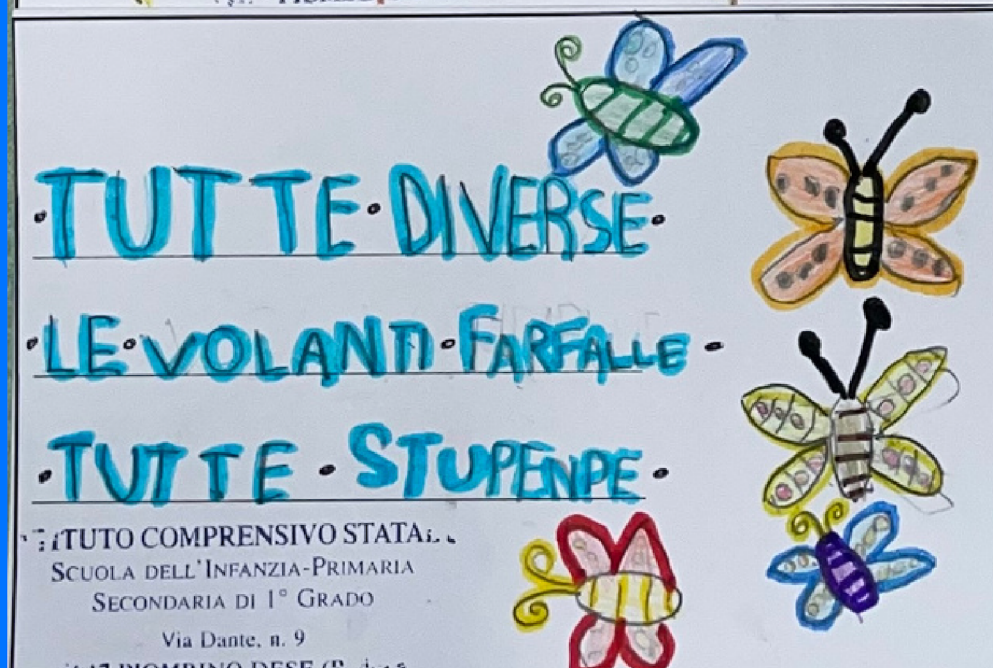 ·TUTTE·DIVERSE·
·LE·VOLANTI·FARFALLE·
·TUTTE·STUPENPE·
ITUTO COMPRENSIVO STATA
SCUOLA DELL'INFANZIA-PRIMARIA
SECONDARIA DI 1° GRADO
Via Dante, n. 9
PIOMBINO DESE